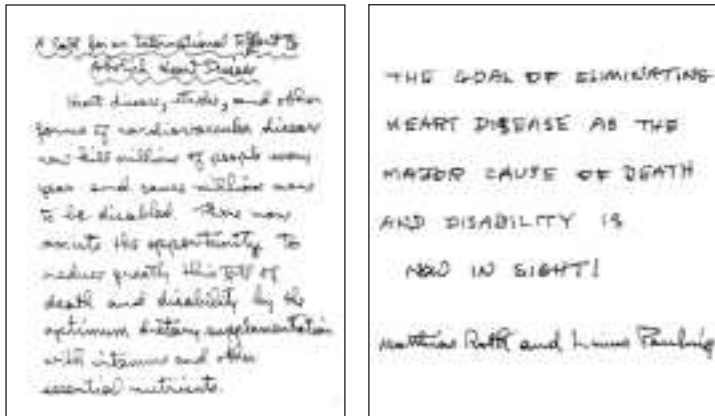 A Call for an International Effort to
Abolish Heart Disease
Heart disease, stroke, and other
forms of cardiovascular disease
now kill millions of people every
year and cause millions more
to be disabled. There now
exists the opportunity to
reduce greatly this toll of
death and disability by the
optimum dietary supplementation
with vitamins and other
essential nutrients.
THE GOAL OF ELIMINATING
HEART DISEASE AS THE
MAJOR CAUSE OF DEATH
AND DISABILITY IS
NOW IN SIGHT!
Matthias Rath and Linus Pauling